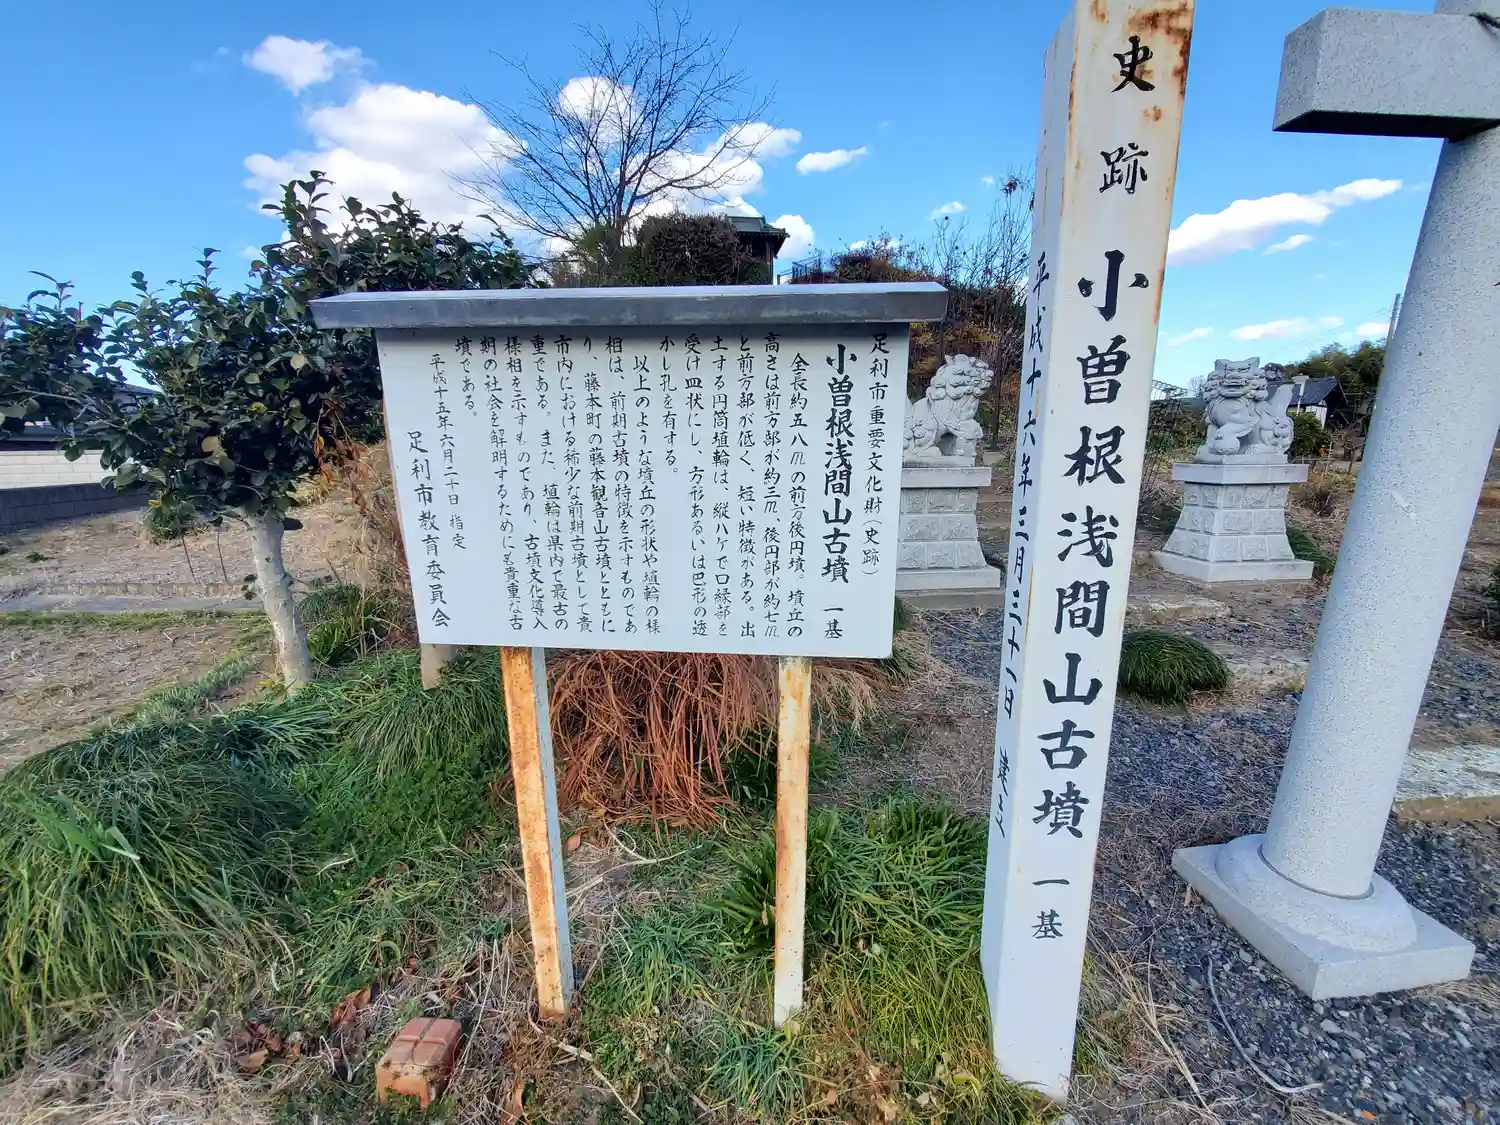 足利市重要文化財(史跡)
小曽根浅間山古墳 一基
全長約五八mの前方後円墳。墳丘の
高さは前方部が約三m、後円部が約七m
と前方部が低く、短い特徴がある。出
土する円筒埴輪は、縦ハケで口縁部を
受け皿状にし、方形あるいは巴形の透
かし孔を有する。
以上のような墳丘の形状や埴輪の様
相は、前期古墳の特徴を示すものであ
り、藤本町の藤本観音山古墳とともに
市内における稀少な前期古墳として貴
重である。また、埴輪は県内で最古の
様相を示すものであり、古墳文化導入
期の社会を解明するためにも貴重な古
墳である。
平成十五年六月二十日 指定
足利市教育委員会
史跡 小曽根浅間山古墳 一基
平成十六年三月三十一日 建之